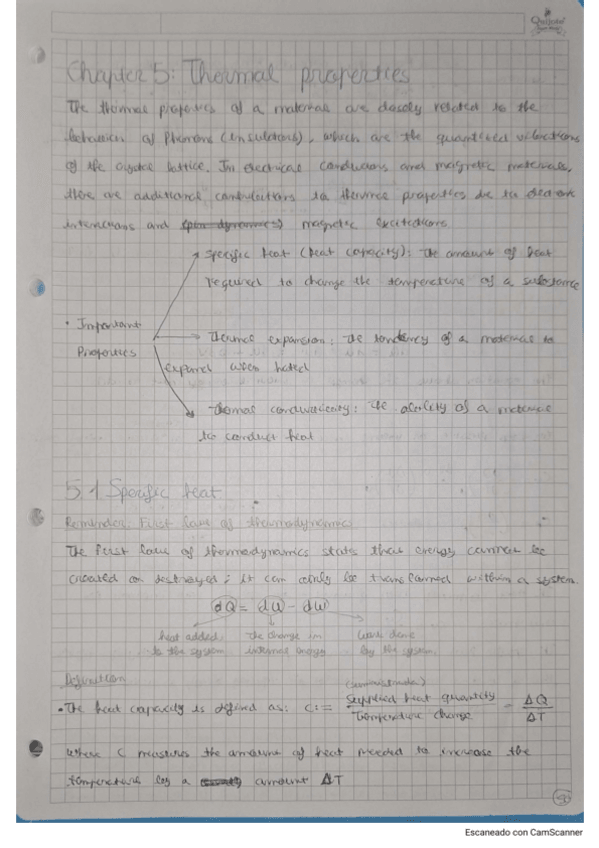 Chapter 5: Thermal properties
The thermal properties of a material are closely related to the
behaviour of Phonons (insulators), which are the quantized vibrations
of the crystal lattice. In electrical conductors and magnetic materials,
there are additional contributions to thermal properties due to
interactions and magnetic excitations
specific heat (heat capacity): the amount of heat
required to change the temperature of a substance
• Important
Properties
Thermal expansion: the tendency of a material to
expand when heated
Thermal conductivity: the ability of a material
to conduct heat
5.1 Specific heat
Reminder: First law of thermodynamics
The first law of thermodynamics states that energy cannot be
created or destroyed; it can only be transformed within a system.
dQ = dU - dW
heat added to the system
the change in internal energy
work done by the system
Definition
(suministrada)
• The heat capacity is defined as: C := Supplied heat quantity / Temperature change = ΔQ / ΔT
where C measures the amount of heat needed to increase the
temperature by a amount ΔT
Escaneado con CamScanner